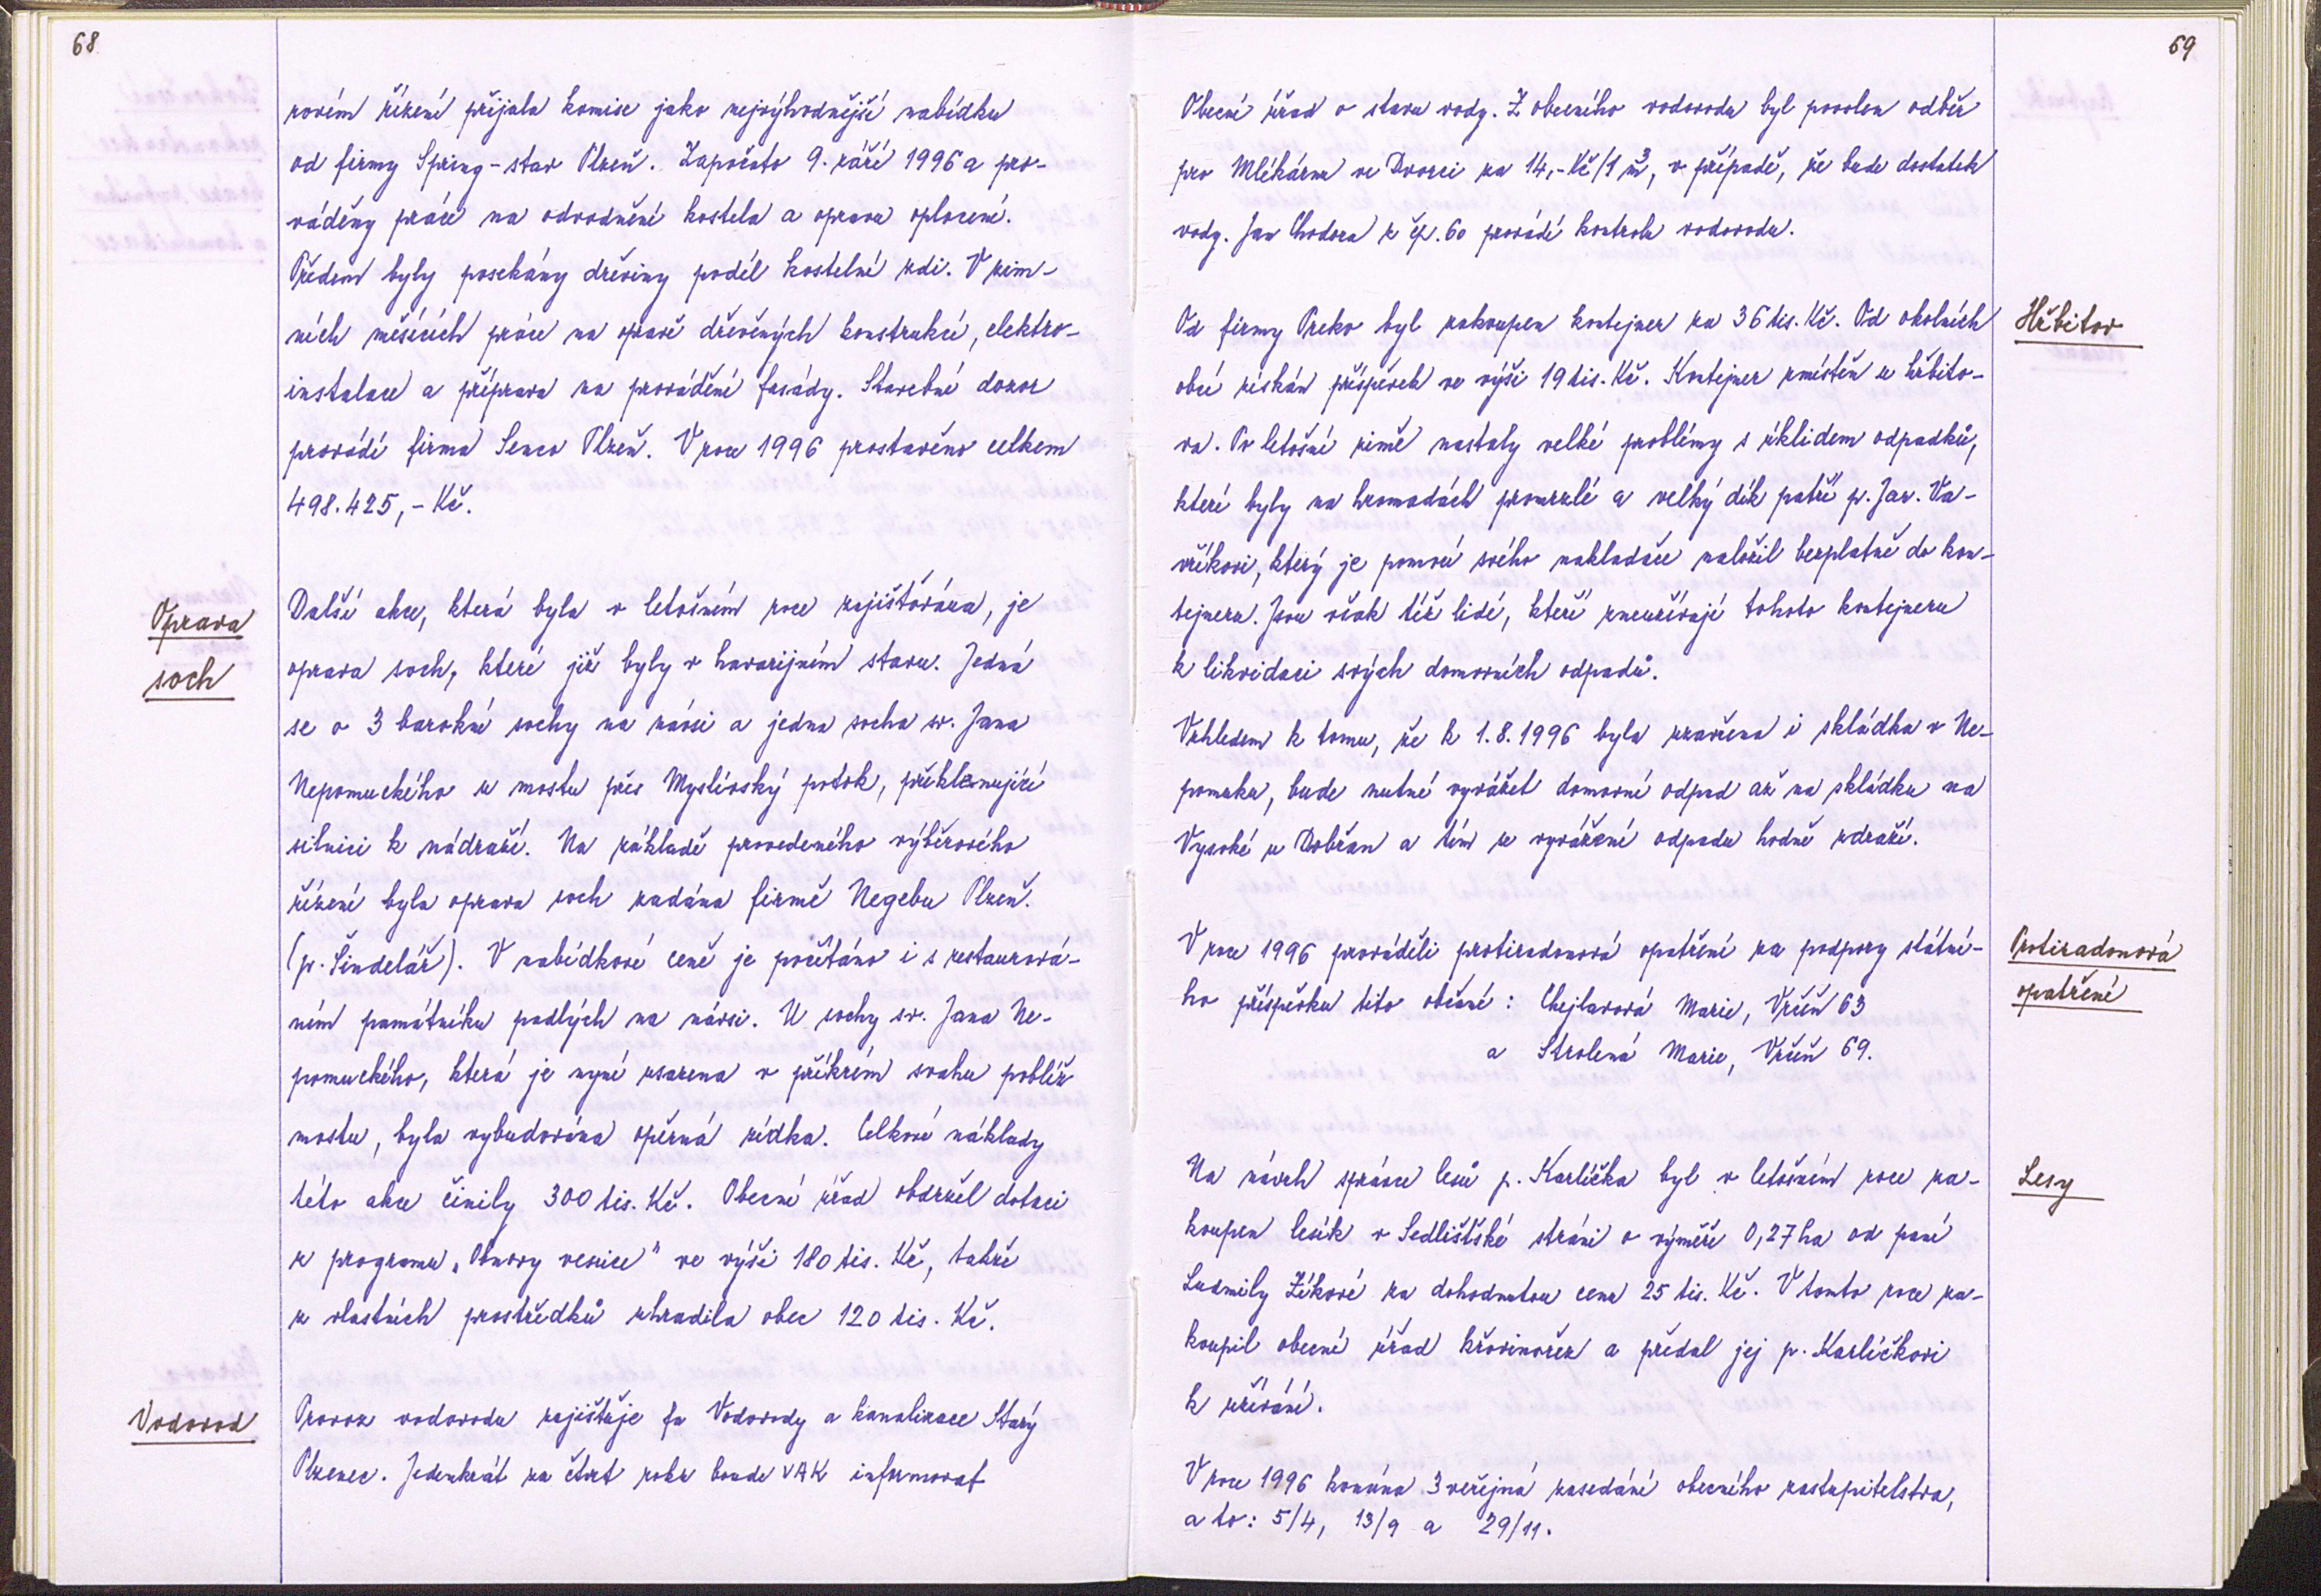 68
rovém řízení přijala komise jako nejvýhodnější nabídku
od firmy Spring-stav Plzeň. Započato 9. září 1996 a pro-
váděny práce na odvodnění kostela a oprava oplocení.
Předem byly posekány dřeviny podél kostelní zdi. V zim-
ních měsících práce na opravě dřevěných konstrukcí, elektro-
instalace a příprava na provádění fasády. Stavební dozor
provádí firma Senco Plzeň. V roce 1996 prostavěno celkem
498.425,- Kč.
Oprava
soch
Další akce, která byla v letošním roce zajišťována, je
oprava soch, které již byly v havarijním stavu. Jedná
se o 3 barokní sochy na návsi a jedna socha sv. Jana
Nepomuckého u mostu přes Myslívský potok, překlenující
silnici k nádraží. Na základě provedeného výběrového
řízení byla oprava soch zadána firmě Negebu Plzeň.
(p. Šindelář). V nabídkové ceně je počítáno i s restaurová-
ním památníku padlých na návsi. U sochy sv. Jana Ne-
pomuckého, která je nyní usazena v příkrém svahu poblíž
mostu, byla vybudována opěrná zídka. Celkové náklady
této akce činily 300 tis. Kč. Obecní úřad obdržel dotaci
z programu „Obnovy vesnice" ve výši 180 tis. Kč, takže
z vlastních prostředků uhradila obec 120 tis. Kč.
Vodovod
Provoz vodovodu zajišťuje fa Vodovody a kanalizace Starý
Plzenec. Jedenkrát za čtvrt roku bude VAK informovat
69
Obecní úřad o stavu vody. Z obecního vodovodu byl povolen odběr
pro Mlékárnu ve Dvorci za 14,-Kč/1 m³, v případě, že bude dostatek
vody. Jan Chodora z čp. 60 provádí kontrolu vodovodu.
Hřbitov
Od firmy Preko byl zakoupen kontejner za 36 tis. Kč. Od okolních
obcí získán příspěvek ve výši 19 tis. Kč. Kontejner umístěn u hřbito-
va. Po letošní zimě nastaly velké problémy s úklidem odpadků,
které byly na hromadách promrzlé a velký dík patří p. Jar. Va-
vříkovi, který je pomocí svého nakladače naložil bezplatně do kon-
tejneru. Jsou však též lidé, kteří zneužívají tohoto kontejneru
k likvidaci svých domovních odpadů.
Vzhledem k tomu, že k 1.8.1996 byla zavřena i skládka v Ne-
pomuku, bude nutné vyvážet domovní odpad až na skládku na
Vysoké u Dobřan a tím se vyvážení odpadu hodně zdraží.
Protiradonová
opatření
V roce 1996 prováděli protiradonová opatření za podpory státní-
ho příspěvku tito občané: Chejlavová Marie, Vrčeň 63
a Strolená Marie, Vrčeň 69.
Lesy
Na návrh správce lesů p. Karlíčka byl v letošním roce za-
koupen lesík v Sedlišťské stráni o výměře 0,27 ha od paní
Ludmily Zíkové za dohodnutou cenu 25 tis. Kč. V tomto roce za-
koupil obecní úřad křovinořez a předal jej p. Karlíčkovi
k užívání.
V roce 1996 konána 3 veřejná zasedání obecního zastupitelstva,
a to: 5/4, 13/9 a 29/11.